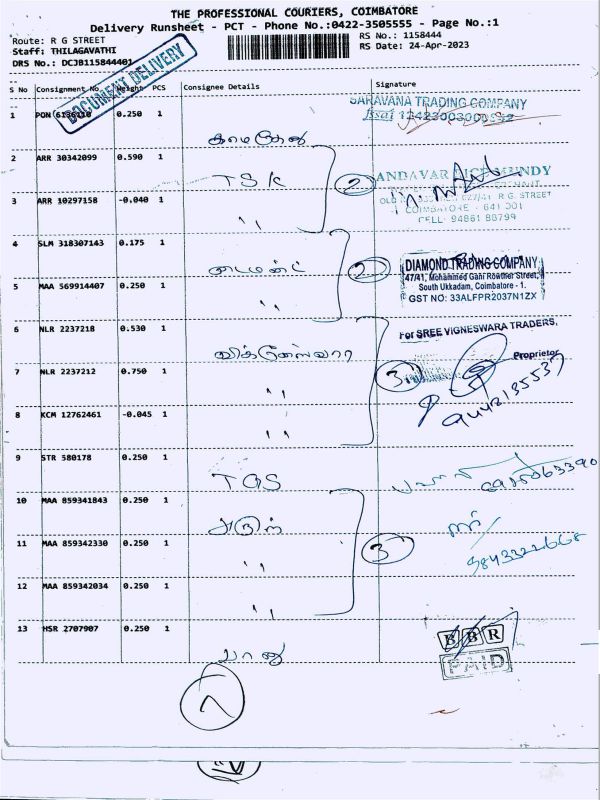 THE PROFESSIONAL COURIERS, COIMBATORE
Delivery Runsheet - PCT - Phone No.:0422-3505555 - Page No.:1
Route: R G STREET
Staff: THILAGAVATHI
DRS No.: DCJB115844401
RS No.: 1158444
RS Date: 24-Apr-2023
DOCUMENT DELIVERY
S No Consignment No. Weight PCS Consignee Details Signature
SARAVANA TRADING COMPANY
fssai 12423003000552
1 PON 6136110 0.250 1
காமதேனு
2 ARR 30342099 0.590 1
TSK
2
3 ARR 10297158 -0.040 1
,,
R.G. STREET
COIMBATORE - 641 001
CELL: 94861 88799
4 SLM 318307143 0.175 1
டைமன்ட்
2
DIAMOND TRADING COMPANY
47/41, Mohammed Gani Rowther Street,
South Ukkadam, Coimbatore - 1.
GST NO: 33ALFPR2037N1ZX
5 MAA 569914407 0.250 1
,,
6 NLR 2237218 0.530 1
விக்னேஸ்வரா
For SREE VIGNESWARA TRADERS,
Proprietor
9442135537
7 NLR 2237212 0.750 1
,,
3
8 KCM 12762461 -0.045 1
,,
9 STR 580178 0.250 1
TGS
10 MAA 859341843 0.250 1
அருண்
11 MAA 859342330 0.250 1
,,
3
9843322668
12 MAA 859342034 0.250 1
,,
13 HSR 2707907 0.250 1
பானு
BBR
PAID
7